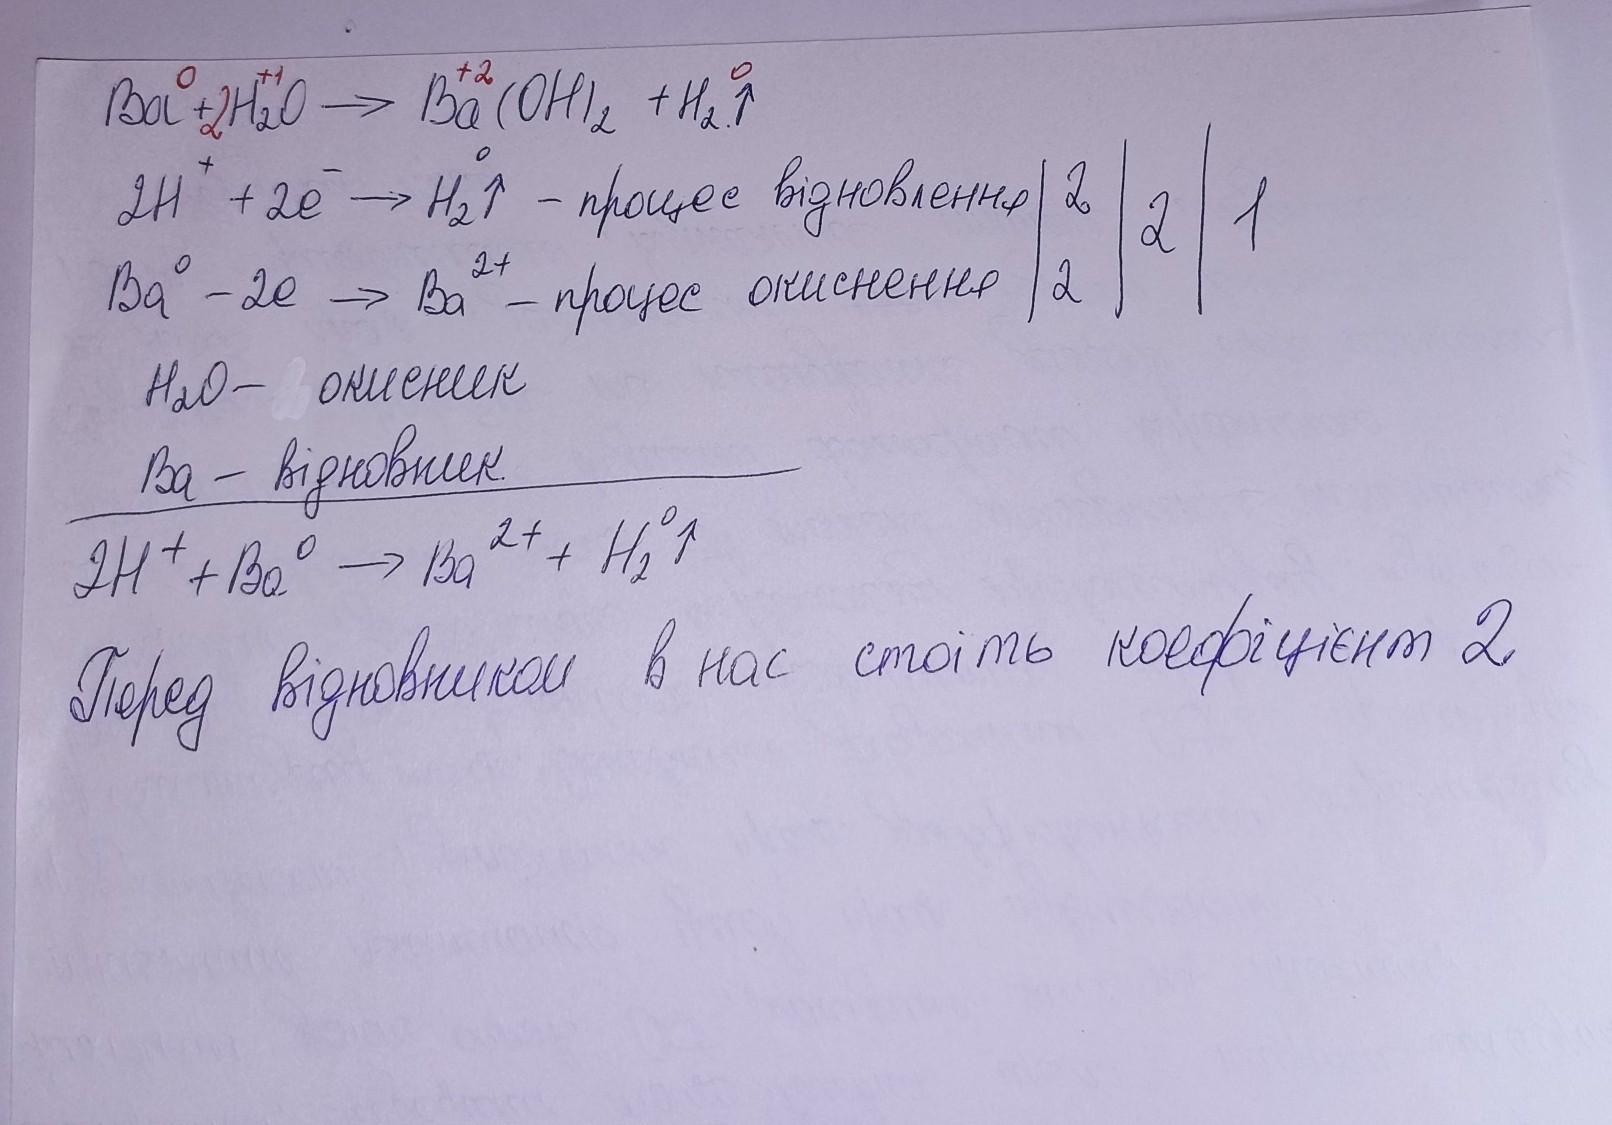 Ba⁰ + 2H₂⁺¹O → Ba⁺²(OH)₂ + H₂⁰↑
2H⁺ + 2e⁻ → H₂⁰↑ – процес відновлення | 2 | 2 | 1
Ba⁰ – 2e → Ba²⁺ – процес окиснення | 2
H₂O – окисник
Ba – відновник.
2H⁺ + Ba⁰ → Ba²⁺ + H₂⁰↑
Перед відновником в нас стоїть коефіцієнт 2